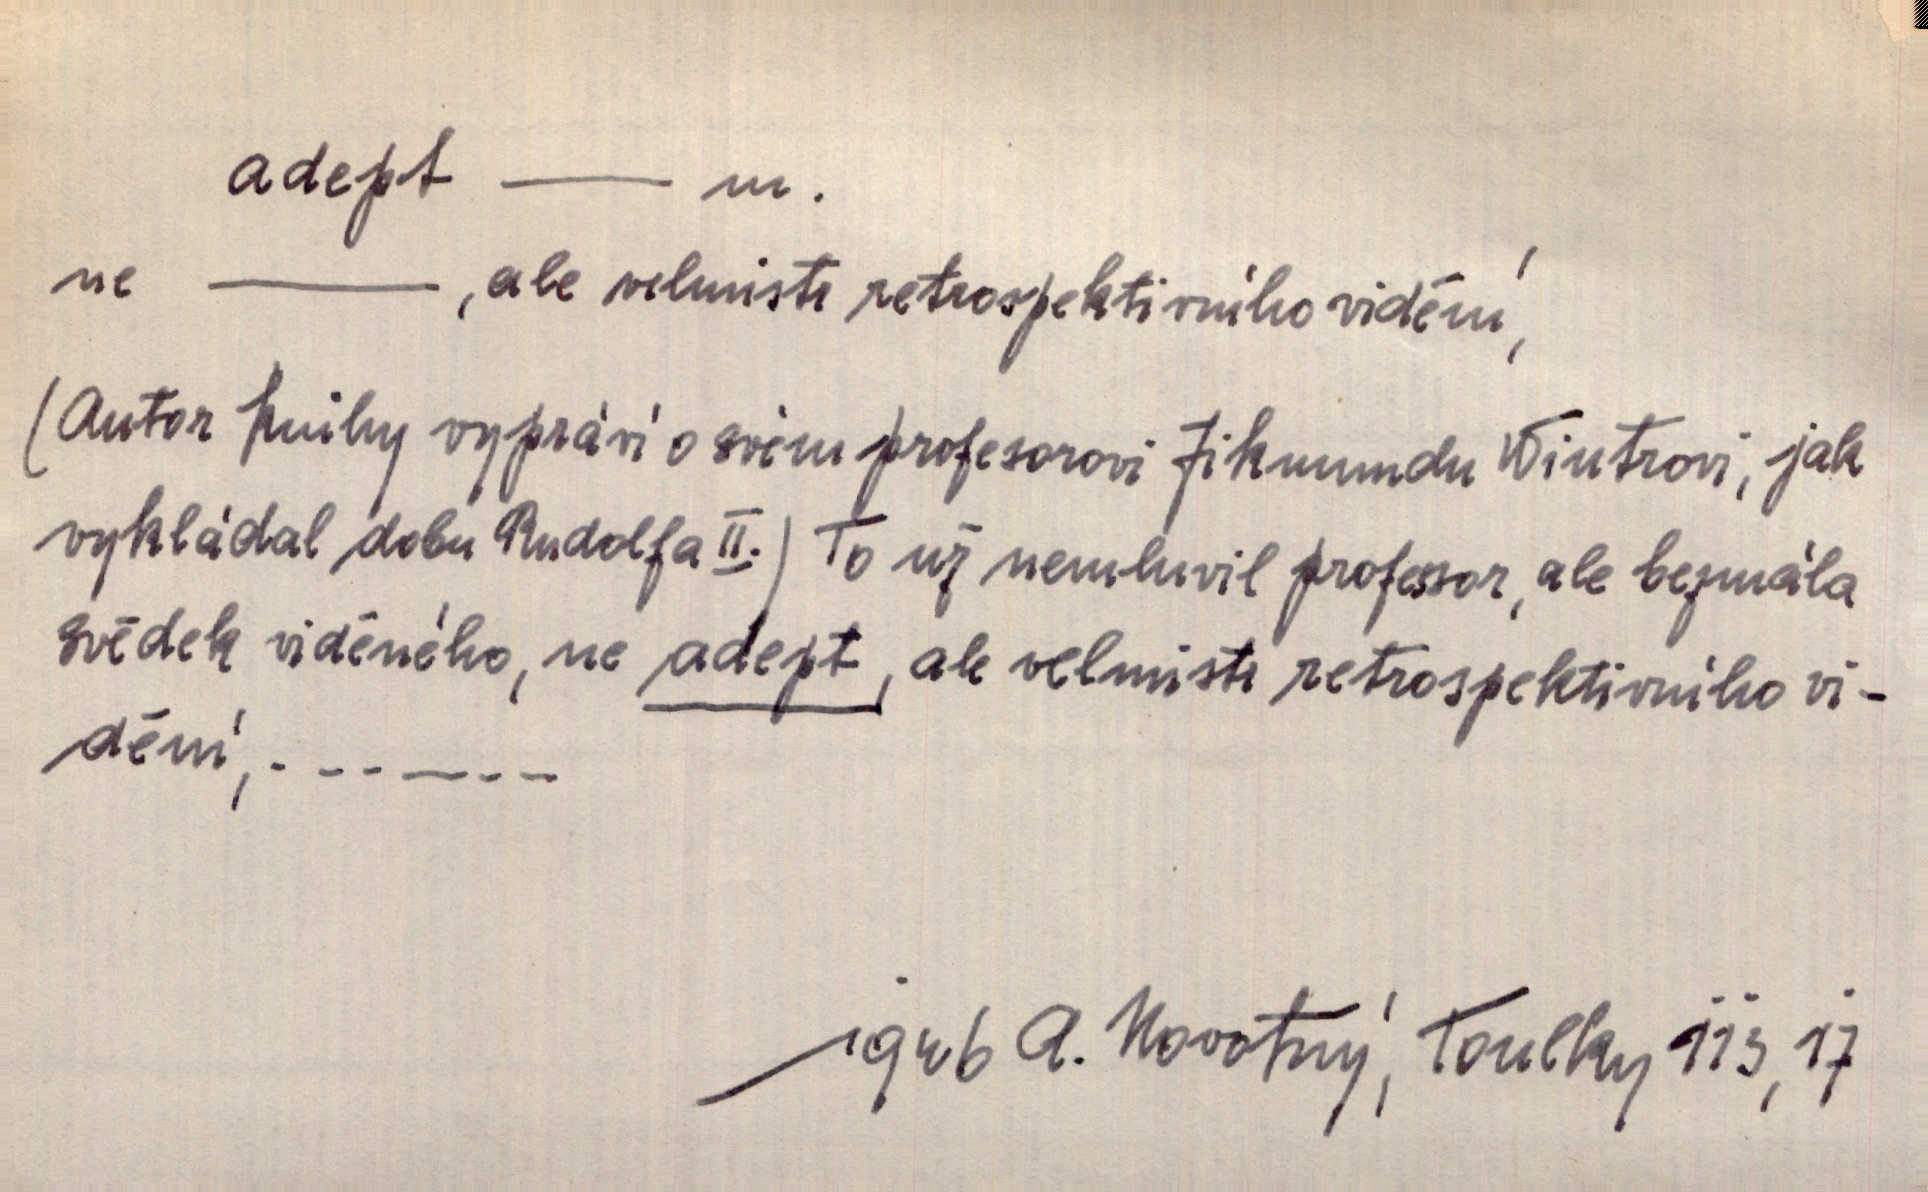 adept —— m.
ne ———, ale velmistr retrospektivního vidění,
(Autor knihy vypráví o svém profesorovi Zikmundu Wintrovi, jak
vykládal dobu Rudolfa II.) To už nemluvil professor, ale bezmála
svědek viděného, ne adept, ale velmistr retrospektivního vi-
dění, . - - — - -
1946 A. Novotný, Toulky 113, 17